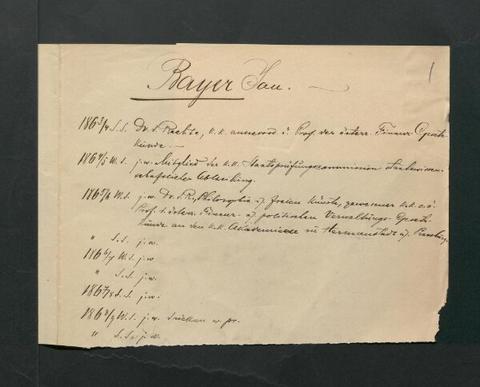 Bayer Jan. —
1
186 3/4 S.S. Dr. d. Rechte, k.k. ausserord. ö. Prof. der österr. Finanz-Gesetz-
kunde. —
186 4/5 W.S. j.w. Mitglied der k.k. Staatsprüfungscommission
Abteilung.
186 5/6 W.S. j.w. Dr. d. R., Philosophie u. freien Künste, gewesener k.k. o.ö.
Prof. d. österr. Finanz- u. politischen Verwaltungs-Gesetz-
kunde an den k.k. Akademieen zu Hermannstadt u.
" S.S. j.w.
186 6/7 W.S. j.w.
" S.S. j.w.
186 7/8 S.S. j.w.
186 8/9 W.S. j.w. w. pr.
" S.S. j.w.